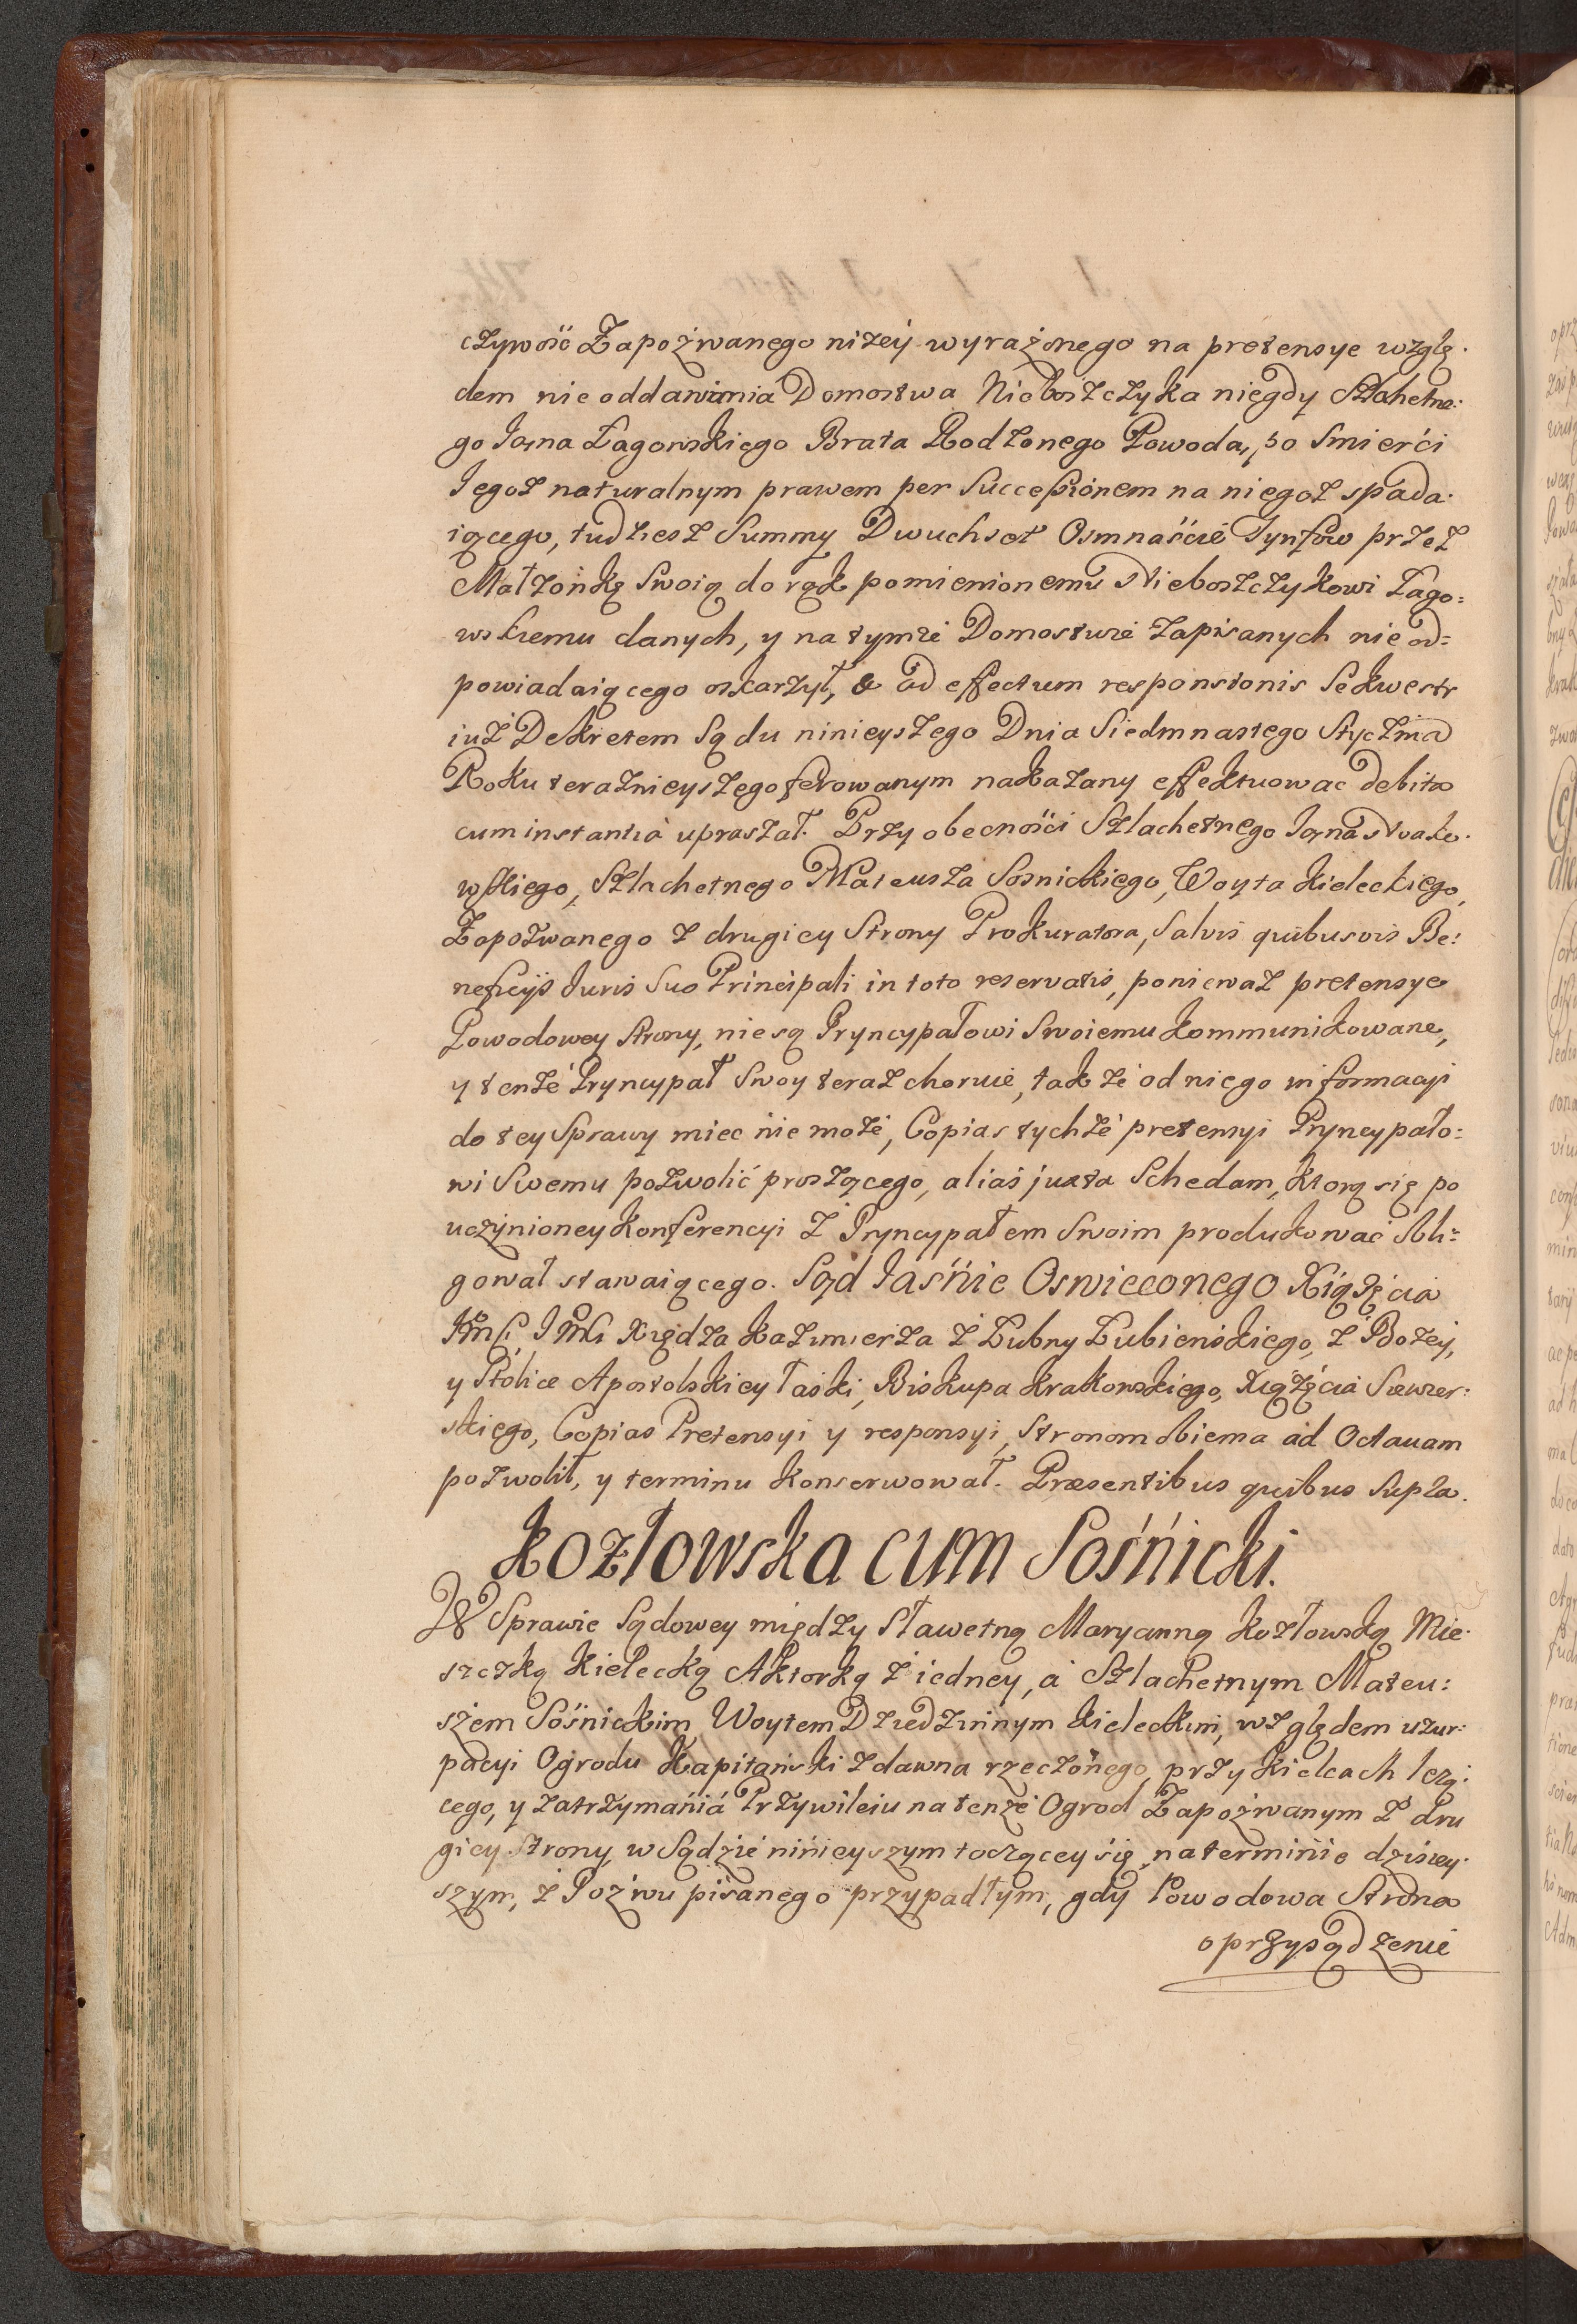 czywość Zapozwanego niżey wyrażonego na pretensye wzglę:
dem nieoddawania Domostwa Nieboszczyka niegdy Szlahetne:
go Jana Łagowskiego Brata Rodzonego Powoda, po Smierći
Jegoż naturalnym prawem per Successionem na niegoż spada:
iącego, tudziesz Summy Dwuchset Osmnaśćie Tynfow przez
Małżonkę Swoią do rąk pomienionemu Nieboszczykowi Łago=
wskiemu danych, y na tymże Domostwie zapisanych nie od=
powiadaiącego oskarżył, & ad effectum responsionis Sekwestr
iuż Dekretem Sądu ninieyszego Dnia Siedmnastego Stycznia
Roku teraznieyszego ferowanym nakazany effektuowac debita
cum instantia upraszał. Przy obecnośći Szlachetnego Jana
wskiego, Szlachetnego Mateusza Sosnickiego, Woyta Kieleckiego,
Zapozwanego z drugiey Strony Prokuratora, Salvis quibusvis Be:
neficijs Juris Suo Principali in toto reservatis, poniewaz pretensye
Powodowey Strony, nie są Pryncypałowi Swoiemu kommunikowane,
y tenże Pryncypał Swoy teraz choruie, tak że od niego informacyi
do tey Sprawy miec nie może, Copias tychże pretensyi Pryncypało=
wi Swemu pozwolić proszącego, alias juxta Schedam, ktorą się po
uczynioney konferencyi z Pryncypałem Swoim produkować obli=
gował stawaiącego. Sąd Jaśnie Oswieconego Xiążęcia
Jmći, Jmći Xiędza Kazimierza z Łubny Łubieńskiego, z Bożey,
y Stolice Apostolskiey łaski, Biskupa Krakowskiego, Xiążęcia Siewier:
skiego, Copias Pretensyi y responsyi, Stronom obiema ad Octavam
pozwolił, y terminu konserwował. Præsentibus quibus Supra.
Kozłowska cum Sośnicki.
W Sprawie Sądowey między Sławetną Maryanną Kozłowską Mie:
szczką Kielecką Aktorką z iedney, a Szlachetnym Mateu:
szem Sośnickim Woytem Dziedzinnym Kieleckim, względem uzur:
pacyi Ogrodu Kapitański zdawna rzeczonego, przy Kielcach leżą:
cego, y zatrzymania Przywileiu na tenże Ogrod Zapozwanym z dru
giey Strony, w Sądzie ninieyszym toczącey się, na terminie dzisiey:
szym, z Pozwu pisanego przypadłym, gdy Powodowa Strona
o przysądzenie